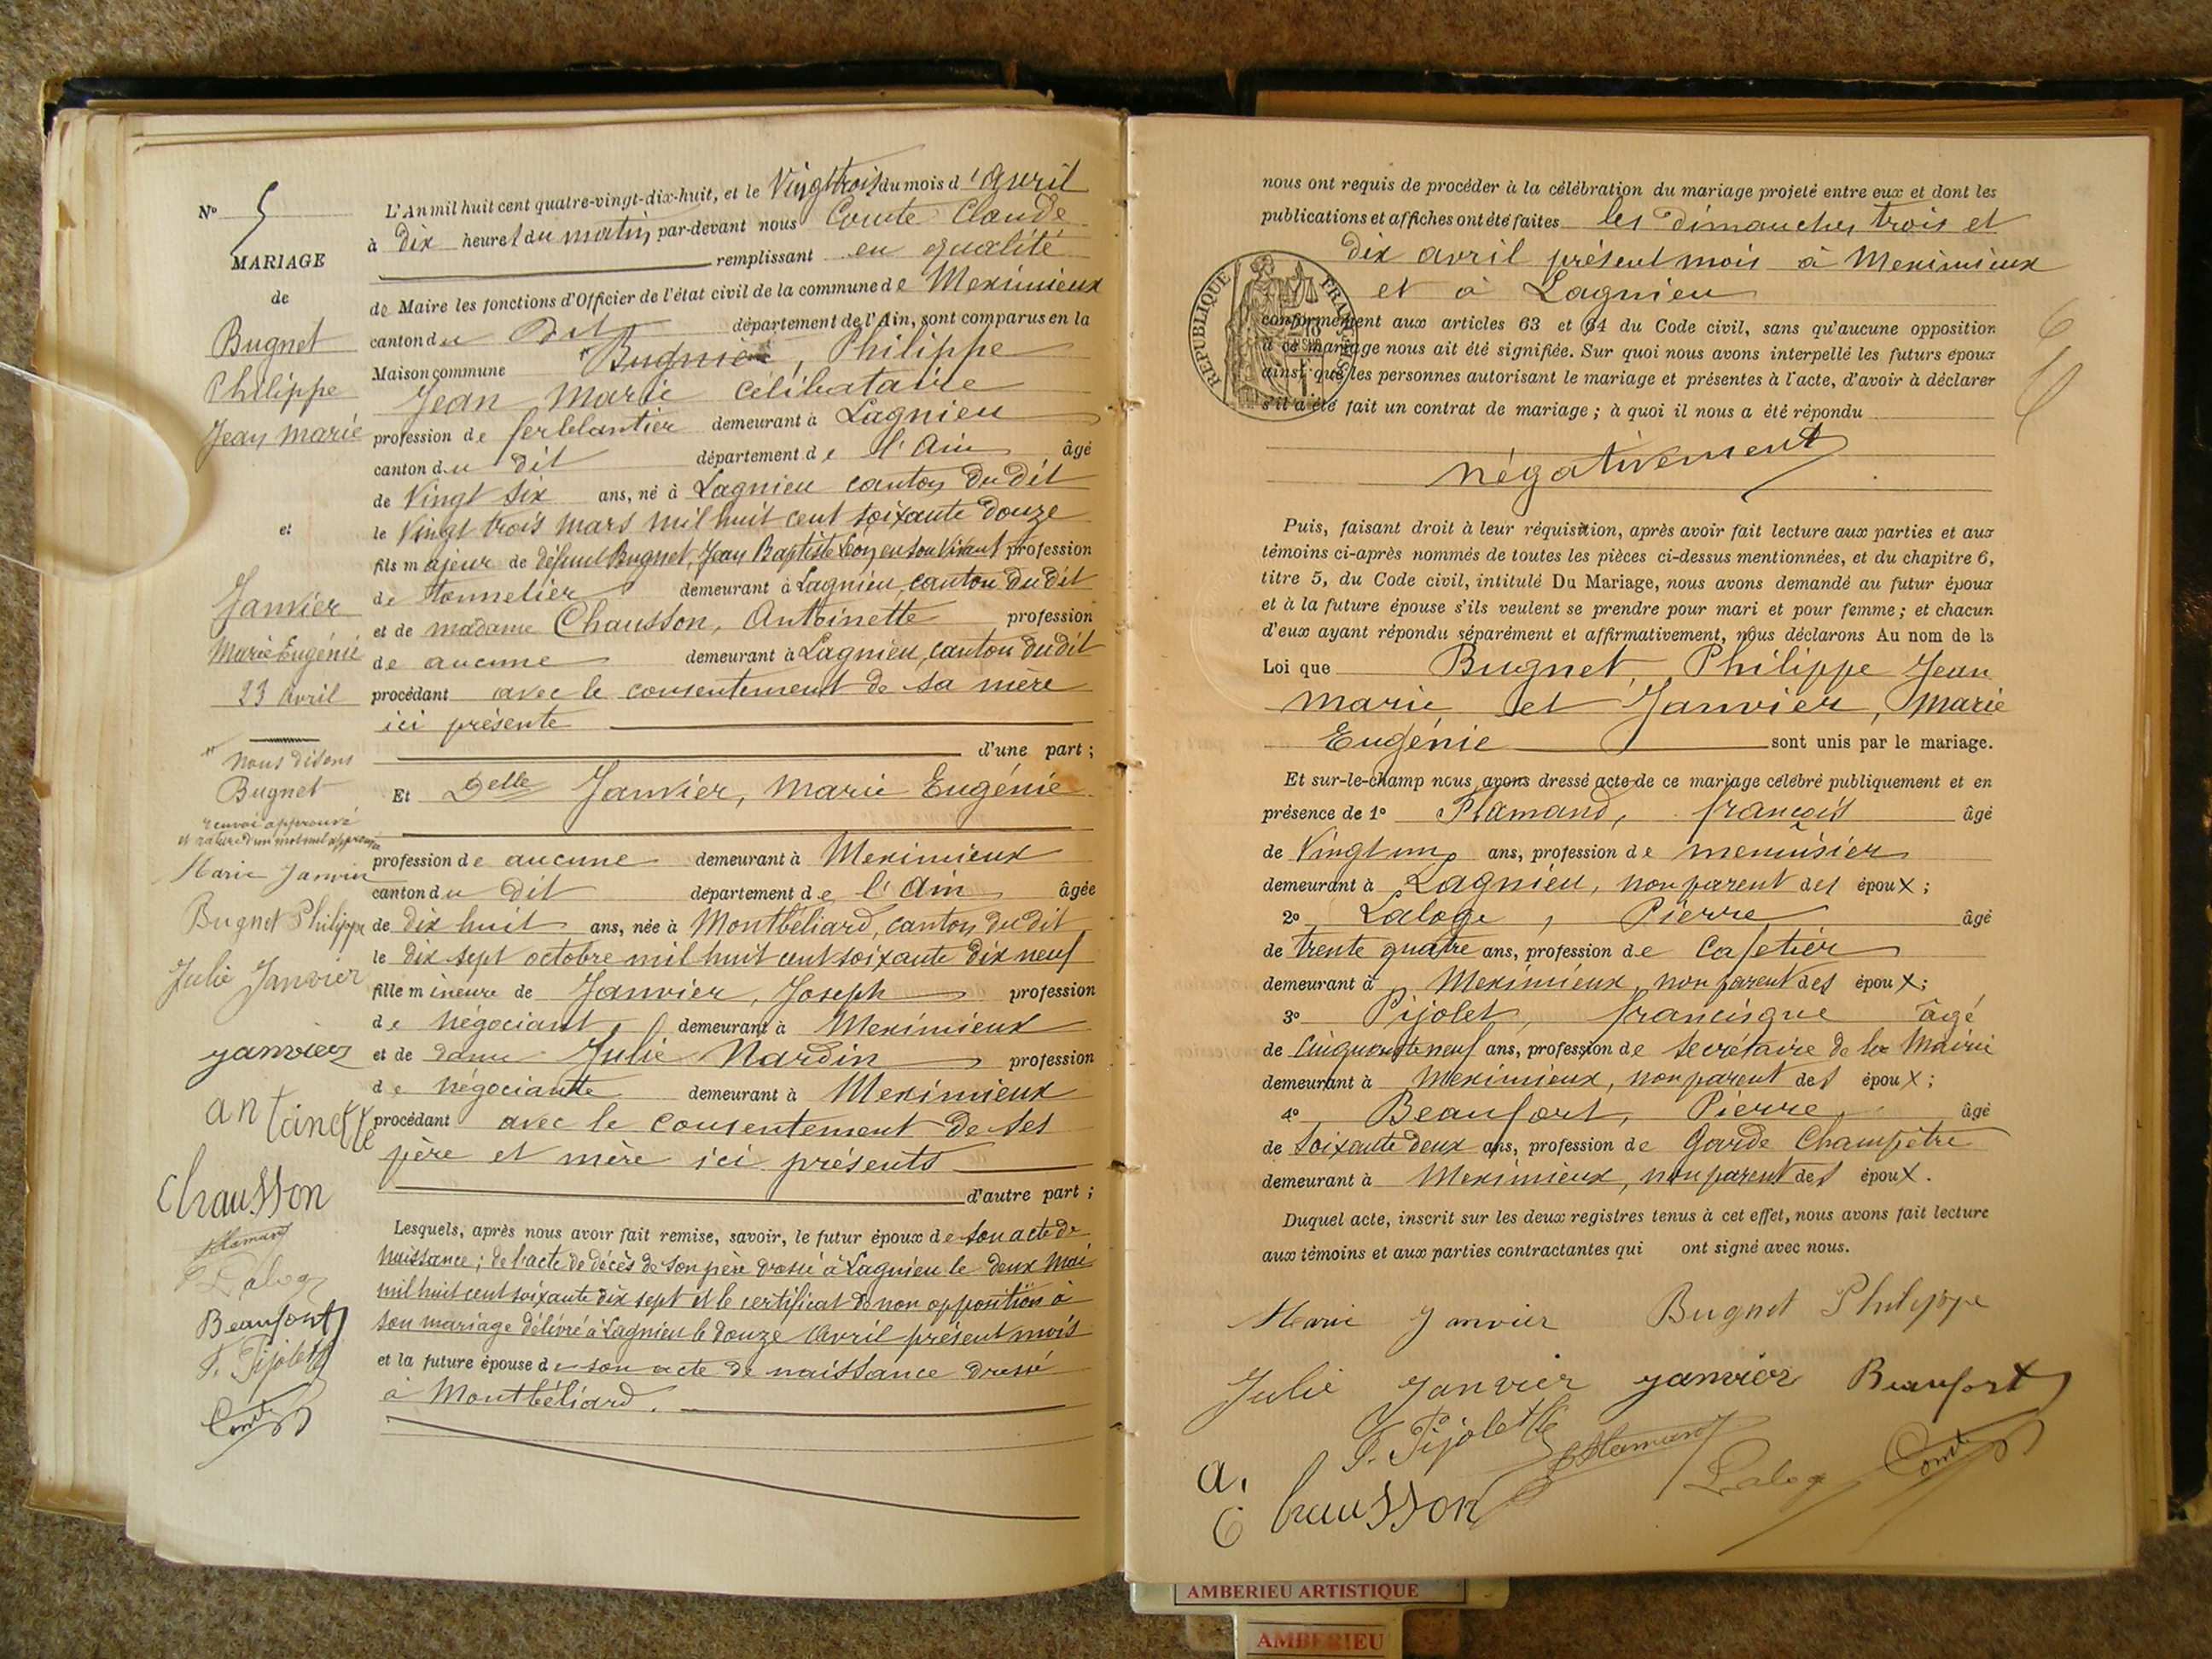 N° 5
MARIAGE
de
Bugnet
Philippe
Jean Marie
et
Janvier
Marie Eugénie
23 Avril
Nous disons
Bugnet
renvoi approuvé
et rature d'un mot nul approuvée
Marie Janvier
Bugnet Philippe
Julie Janvier
Janvier
antoinette
Chausson
Flamand
Laloge
Beaufort
F. Pijolet
Comte
L'An mil huit cent quatre-vingt-dix-huit, et le Vingt trois du mois d'Avril
à Dix heures du matin par-devant nous Comte Claude
remplissant en qualité
de Maire les fonctions d'Officier de l'état civil de la commune de Meximieux
canton du Dit département de l'Ain, sont comparus en la
Maison commune Bugnier, Philippe
Jean Marie célibataire
profession de ferblantier demeurant à Lagnieu
canton du Dit département de l'Ain âgé
de Vingt Six ans, né à Lagnieu canton Du Dit
le Vingt trois Mars mil huit cent soixante Douze
fils majeur de Défunt Bugnet, Jean Baptiste Léon en son Vivant profession
de tonnelier demeurant à Lagnieu, canton Du Dit
et de madame Chausson, Antoinette profession
de aucune demeurant à Lagnieu, canton Du Dit
procédant avec le consentement de sa mère
ici présente
d'une part ;
Et Delle Janvier, Marie Eugénie
profession de aucune demeurant à Meximieux
canton du Dit département de l'Ain âgée
de Dix huit ans, née à Montbéliard, canton Du Dit
le Dix sept octobre mil huit cent soixante Dix neuf
fille mineure de Janvier, Joseph profession
de négociant demeurant à Meximieux
et de dame Julie Nardin profession
de Négociante demeurant à Meximieux
procédant avec le consentement de ses
père et mère ici présents
d'autre part ;
Lesquels, après nous avoir fait remise, savoir, le futur époux de son acte de
naissance ; de l'acte de décès de son père dressé à Lagnieu le deux Mai
mil huit cent soixante dix sept et le certificat de non opposition à
son mariage délivré à Lagnieu le douze Avril présent mois
et la future épouse de son acte de naissance dressé
à Montbéliard.
nous ont requis de procéder à la célébration du mariage projeté entre eux et dont les
publications et affiches ont été faites les dimanches trois et
dix avril présent mois à Meximieux
et à Lagnieu
REPUBLIQUE FRANÇAISE
conformément aux articles 63 et 64 du Code civil, sans qu'aucune opposition
à ce mariage nous ait été signifiée. Sur quoi nous avons interpellé les futurs époux
ainsi que les personnes autorisant le mariage et présentes à l'acte, d'avoir à déclarer
s'il a été fait un contrat de mariage ; à quoi il nous a été répondu
négativement
Puis, faisant droit à leur réquisition, après avoir fait lecture aux parties et aux
témoins ci-après nommés de toutes les pièces ci-dessus mentionnées, et du chapitre 6,
titre 5, du Code civil, intitulé Du Mariage, nous avons demandé au futur époux
et à la future épouse s'ils veulent se prendre pour mari et pour femme ; et chacun
d'eux ayant répondu séparément et affirmativement, nous déclarons Au nom de la
Loi que Bugnet, Philippe Jean
Marie et Janvier, Marie
Eugénie sont unis par le mariage.
Et sur-le-champ nous avons dressé acte de ce mariage célébré publiquement et en
présence de 1° Flamand, françois âgé
de Vingt un ans, profession de menuisier
demeurant à Lagnieu, non parent des époux ;
2° Laloge, Pierre âgé
de trente quatre ans, profession de Cafetier
demeurant à Meximieux, non parent des époux ;
3° Pijolet, francisque âgé
de Cinquante neuf ans, profession de secrétaire de la Mairie
demeurant à Meximieux, non parent des époux ;
4° Beaufort, Pierre, âgé
de Soixante deux ans, profession de Garde Champêtre
demeurant à Meximieux, non parent des époux.
Duquel acte, inscrit sur les deux registres tenus à cet effet, nous avons fait lecture
aux témoins et aux parties contractantes qui ont signé avec nous.
Marie Janvier Bugnet Philippe
Julie Janvier Janvier Beaufort
F. Pijolet Flamand Comte
a. Chausson Laloge
AMBERIEU ARTISTIQUE
AMBERIEU